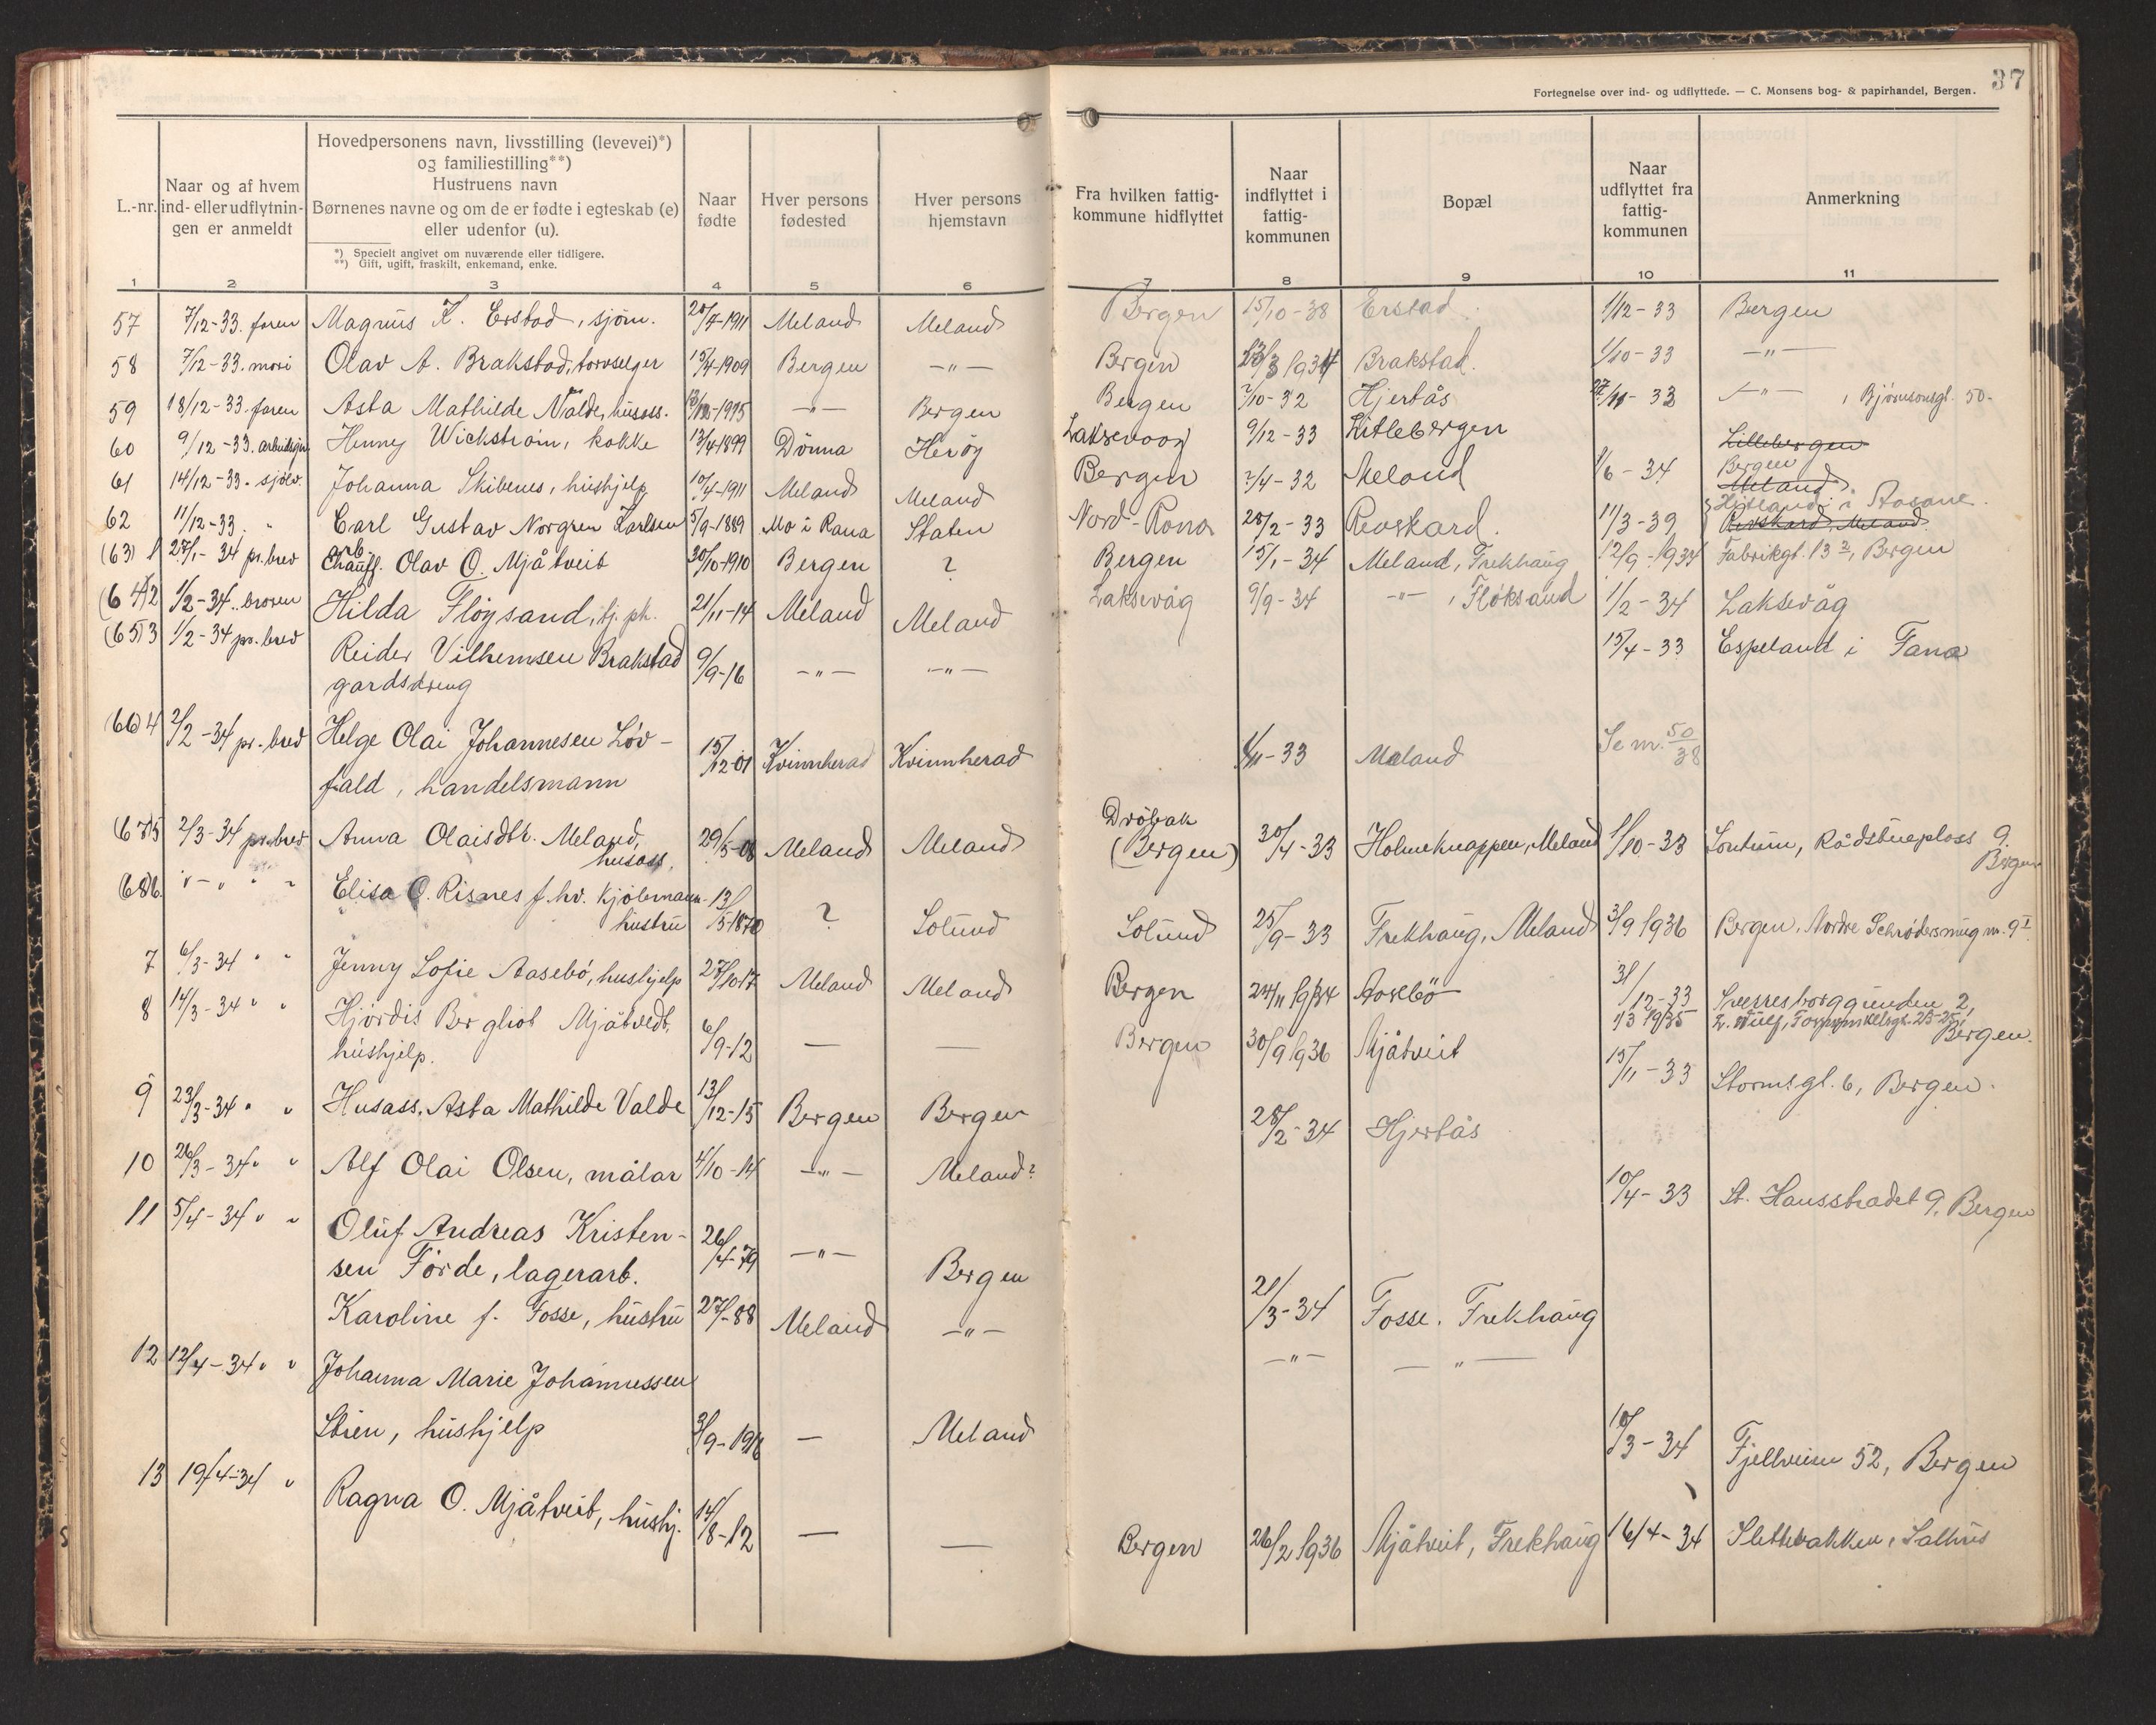 37
Fortegnelse over ind- og udflyttede. — C. Monsens bog- & papirhandel, Bergen.
L.-nr.
Naar og af hvem ind- eller udflytnin- gen er anmeldt
Hovedpersonens navn, livsstilling (levevei)*)
og familiestilling**)
Hustruens navn
Børnenes navne og om de er fødte i egteskab (e)
eller udenfor (u).
*) Specielt angivet om nuværende eller tidligere.
**) Gift, ugift, fraskilt, enkemand, enke.
Naar fødte
Hver persons fødested
Hver persons hjemstavn
Fra hvilken fattig- kommune hidflyttet
Naar indflyttet i fattig- kommunen
Bopæl
Naar udflyttet fra fattig- kommunen
Anmerkning
1 2 3 4 5 6 7 8 9 10 11
57 7/12-33. faren Magnus K. Erstad, sjøm. 20/7-1911 Meland Meland Bergen 15/10-38 Erstad 1/12-33 Bergen
58 7/12-33. mori Olav A. Brakstad, torvselger 15/4-1909 Bergen -"- Bergen 1934 Brakstad. 1/10-33 -"-
59 18/12-33. faren Asta Mathilde Valde, husass. -"- Bergen Bergen 7/10-32 Hjertås -33 -"-, Bjørnsonsgt. 50-
60 9/12-33. Henny Wickstrøm, kokke 13/4 1899 Dönna Herøy Laksevaag 9/12-33 Litlebergen Lillebergen
61 14/12-33. sjølv. Johanna Skibenes, hushjelp 10/4-1911 Meland Meland Bergen ?/4-32 Meland 1/6-34 Bergen
Meland
62 11/12-33. " Carl Gustav Norgren Karlsen 5/9-1889 Mo i Rana Staten Nord-Rana 28/2-33 Revskard. 11/3-39 Hjitland i Aasane.
Revskard, Meland
(63) 1 27/1-34 pr. brev Chauff. Olav O. Mjåtveit 30/10-1910 Bergen ? Bergen 15/1-34 Meland, Frekhaug 12/9-1934 Fabrikgt. 13 2, Bergen
(64) 2 1/2-34.. broren Hilda Fløysand, tj.pk. 21/11-14 Meland Meland Laksevåg 9/9-34 -"-, Fløksand 1/2-34 Laksevåg
(65) 3 1/2-34 pr. brev Reider Vilhemsen Brakstad 9/9-16 -"- -"- 15/4-33 Espeland i Fana
gardsdreng
(66) 4 2/2-34 pr. brev Helge Olai Johannesen Løv- 15/12-01 Kvinnherad Kvinnherad 1/11-33 Meland Se nr. 50/38
fald, handelsmann
(67) 5 2/3-34 pr. brev Anna Olaisdtr. Meland, 29/5-08 Meland Meland Drøbak (Bergen) 30/4-33 Holmeknappen, Meland 1/10-33 Sontum, Rådstueplass 9.
husass. Bergen
(68) 6. "-" " " Elisa O. Risnes f. hv. Kjøbmann- 13/5-1870 ? Solund Solund 25/9-33 Frekhaug, Meland 3/9 1936 Bergen, Nordre Schrødersmug nr. 9 I
hustru
7 6/3-34 " " Jenny Sofie Aasebö, hushjelp 27/10-17 Meland Meland Bergen 24/11 1934 Aasebö 31/12-33 Sverresborggrunden 2,
8 14/3-34 " " Hjördis Bergliot Mjåtvedt, 6/9-12 — — Bergen 30/9 1936 Mjåtveit 1/3 1935 25, Bergen.
hushjelp. 15/11-33 Stormsgt. 6, Bergen.
9 23/3-34 " " Husass. Asta Mathilde Valde 13/12-15 Bergen Bergen 28/2-34 Hjertås
10 26/3-34 " " Alf Olai Olsen, målar 4/10-14 -"- Meland? 10/4-33 St. Hansstradet 9, Bergen
11 5/4-34 " " Oluf Andreas Kristen- 26/4-79 -"- Bergen 21/3-34 Fosse, Frekhaug
sen Förde, lagerarb.
Karoline f. Fosse, hustru -88 Meland -"- -"- -"-
12 12/4-34 " " Johanna Marie Johannessen
Stien, hushjelp 3/9-1916 — Meland 10/3-34 Fjellveien 52, Bergen
13 19/4-34 " Ragna O. Mjåtveit, hushj. 14/8-12 — — Bergen 26/2 1936 Mjåtveit, Frekhaug 16/4-34 Slettebakken, Salhus